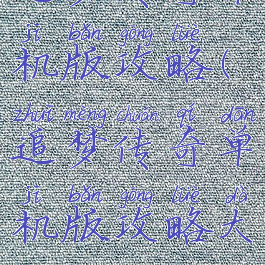 jī bǎn gōng lüè
机版攻略(
zhuī mèng chuán qí dān
追梦传奇单
jī bǎn gōng lüè dà
机版攻略大